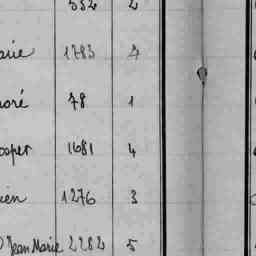 552 2
arie 1783 7
oré 78 1
osper 1681 4
ien 1276 3
Jean Marie 2282 5